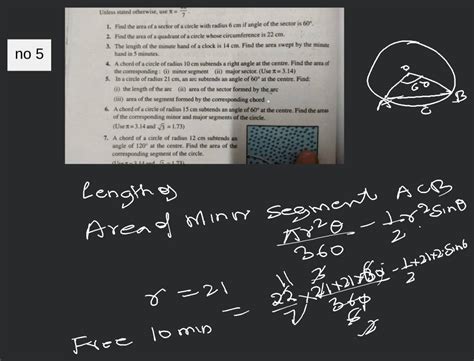 Unless stated otherwise, use π = 22/7
1. Find the area of a sector of a circle with radius 6 cm if angle of the sector is 60°.
2. Find the area of a quadrant of a circle whose circumference is 22 cm.
3. The length of the minute hand of a clock is 14 cm. Find the area swept by the minute
hand in 5 minutes.
4. A chord of a circle of radius 10 cm subtends a right angle at the centre. Find the area of
the corresponding : (i) minor segment (ii) major sector. (Use π = 3.14)
no 5
5. In a circle of radius 21 cm, an arc subtends an angle of 60° at the centre. Find:
(i) the length of the arc (ii) area of the sector formed by the arc
(iii) area of the segment formed by the corresponding chord
6. A chord of a circle of radius 15 cm subtends an angle of 60° at the centre. Find the areas
of the corresponding minor and major segments of the circle.
(Use π = 3.14 and √3 = 1.73)
7. A chord of a circle of radius 12 cm subtends an
angle of 120° at the centre. Find the area of the
corresponding segment of the circle.
(Use π = 3.14 and √3 = 1.73)
O
60
A C B
Length of
Area of Minor segment ACB
πr²θ/360 - 1/2 r² sinθ
r = 21
= 22/7 × 21×21×60/360 - 1/2 × 21×21 sin6
Free 10 min